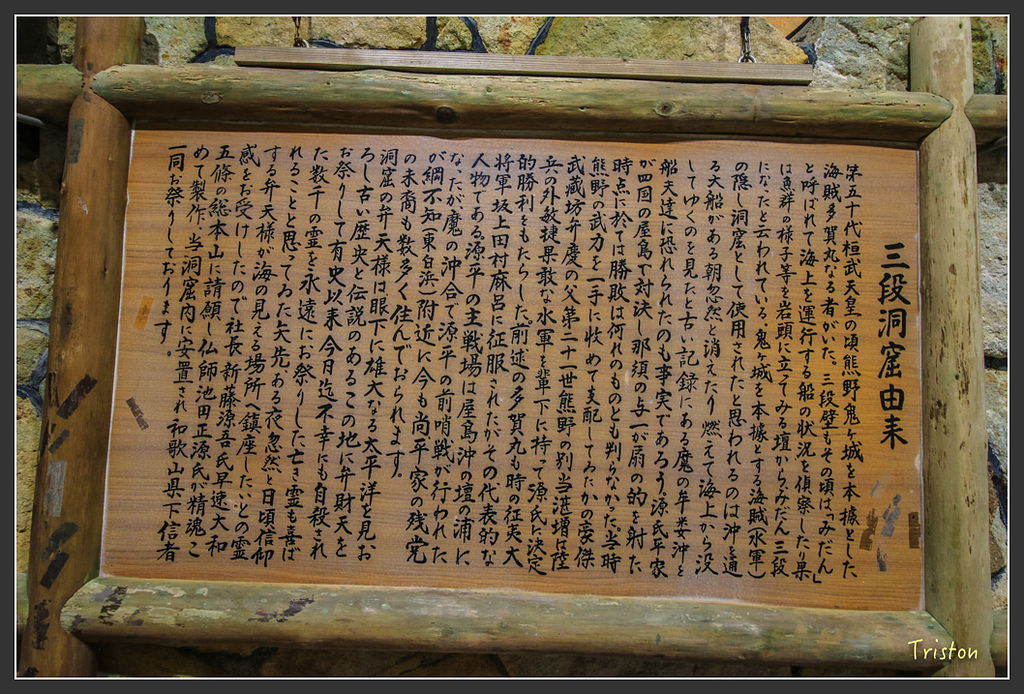 三段洞窟由来
第五十代桓武天皇の頃熊野鬼ヶ城を本據とした
海賊多賀丸なる者がいた。三段壁もその頃は「みだん」
と呼ばれて海上を運行する船の状況を偵察したり巣
は魚群の様子等を岩頭に立ってみる壇からみだん三段
になったと云われている。鬼ヶ城を本據とする海賊水軍)
の隠し洞窟として使用されたと思われるのは沖を通
る大船がある朝忽然と消えたり燃えて海上から没
してゆくのを見たと古い記録にある魔の牟婁沖と
船夫達に恐れられたのも事実であろう。源氏平家
が四国の屋島で対決し那須の与一が扇の的を射た
時点に於ては勝敗は何れのものとも判らなかった。当時
熊野の武力を一手に收めて支配してゐたかの豪傑
武蔵坊弁慶の父第二十一世熊野の別当湛増は陸
兵の外敏捷果敢な水軍を輩下に持って源氏に決定
的勝利をもたらした。前述の多賀丸も時の征夷大
将軍坂上田村麻呂に征服されたがその代表的な
人物である源平の主戦場は屋島沖の壇の浦に
なったが魔の沖合で源平の前哨戦が行われた
が綱不知(東白浜)附近に今も尚平家の残党
の末裔も数多く住んでおられます。
洞窟の弁天様は眼下に雄大なる太平洋を見お
ろし古い歴史と伝説のあるこの地に弁財天を
お祭りして有史以来今日迄不幸にも自殺され
た数千の霊を永遠にお祭りした亡き霊も喜ば
れることと思ってゐた矢先ある夜忽然と日頃信仰
する弁天様が海の見える場所へ鎮座したいとの霊
感をお受けしたので社長新藤源吾氏早速大和
五條の総本山に請願し仏師池田正源氏が精魂こ
めて製作、当洞窟内に安置され和歌山県下信者
一同お祭りしております。
Triston